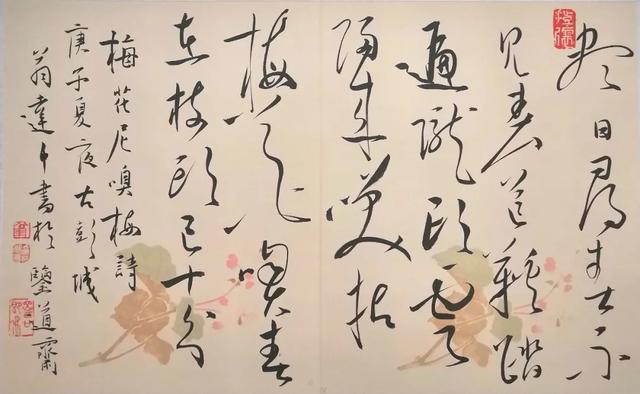 盡日尋春不
見春芒鞋踏
遍隴頭雲
歸來笑拈
梅花嗅春
在枝頭已十分
梅花尼嗅梅詩
庚子夏夜古彭城
翁達書於鑒道齋